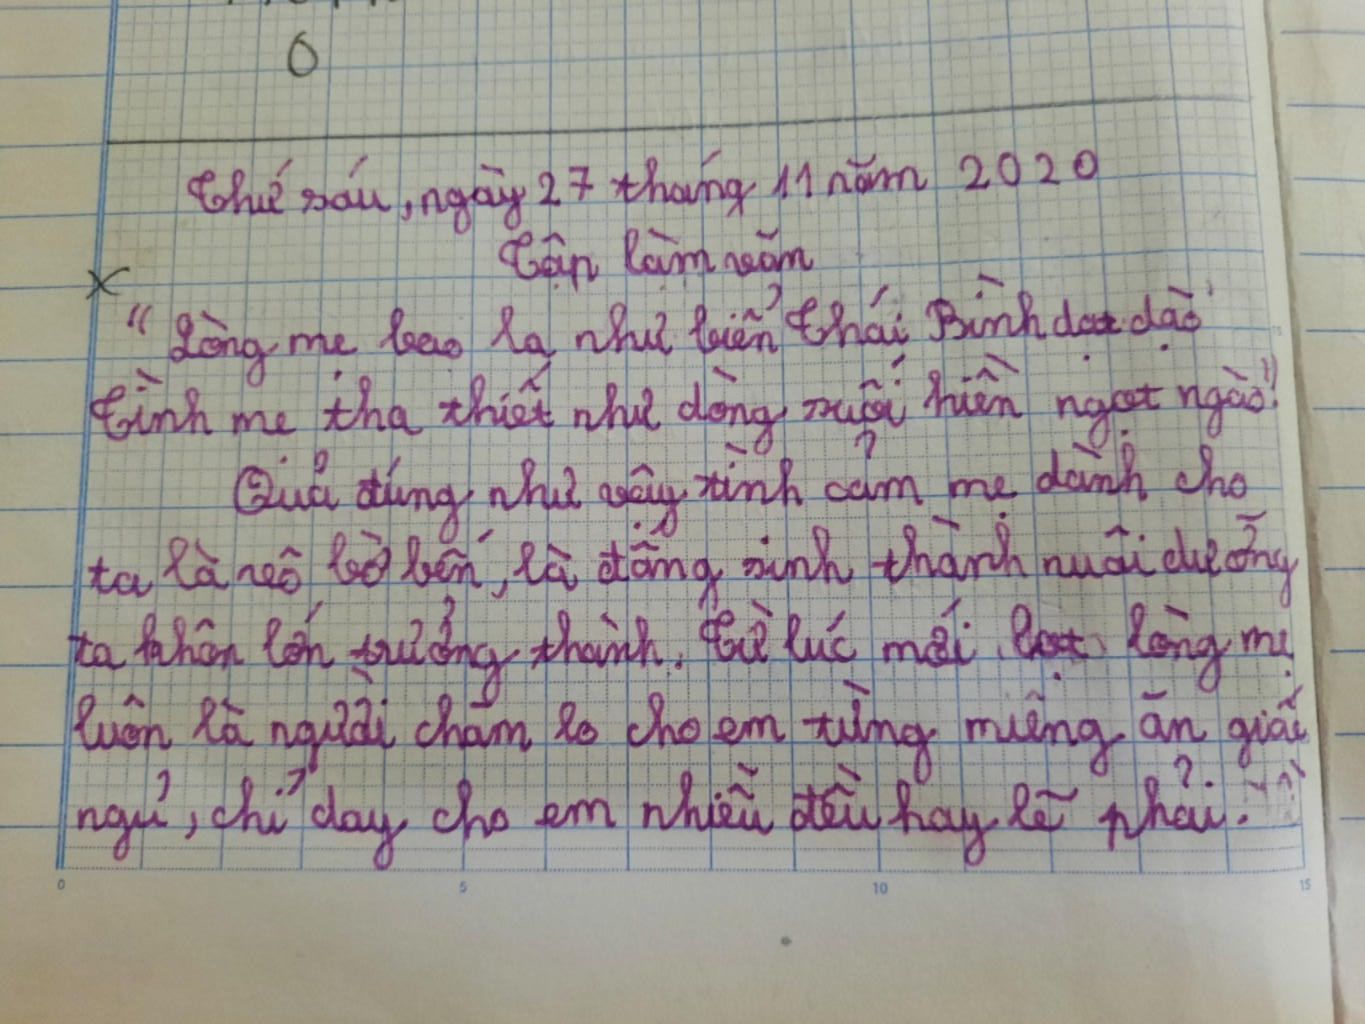 0
Thứ sáu, ngày 27 tháng 11 năm 2020
Tập làm văn
x
"Lòng mẹ bao la như biển Thái Bình dạt dào
Tình mẹ tha thiết như dòng suối hiền ngọt ngào"
Quả đúng như vậy tình cảm mẹ dành cho
ta là vô bờ bến, là đấng sinh thành nuôi dưỡng
ta khôn lớn trưởng thành. Từ lúc mới lọt lòng mẹ
luôn là người chăm lo cho em từng miếng ăn giấc
ngủ, chỉ dạy cho em nhiều đều hay lẽ phải.
0 5 10 15